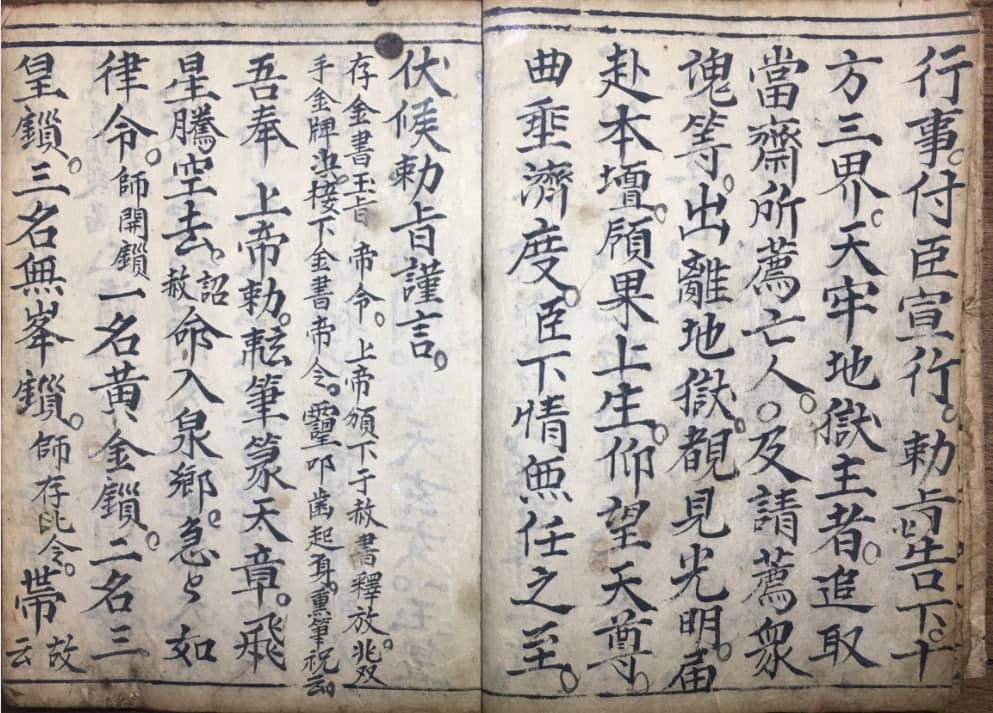 行事。付臣宣行。勅旨告下。十
方三界。天牢地獄主者。追取
當齋所薦亡人。○及請薦衆
魂等。出離地獄。覩見光明。届
赴本壇。願果上生。仰望天尊。
曲垂濟度。臣下情無任之至。
伏候勅旨謹言。
存金書玉旨 帝令。上帝頒下于赦書釋放。兆双
手金牌浜接下金書帝令。靈叩齒起身。熏筆祝云。
吾奉 上帝勅。輚筆篆天章。飛
星騰空去。詔赦命入泉鄉。急々如
律令。師開鎖一名黄金鎖。二名三
皇鎖。三名無峯鎖。師存此令。帶故云